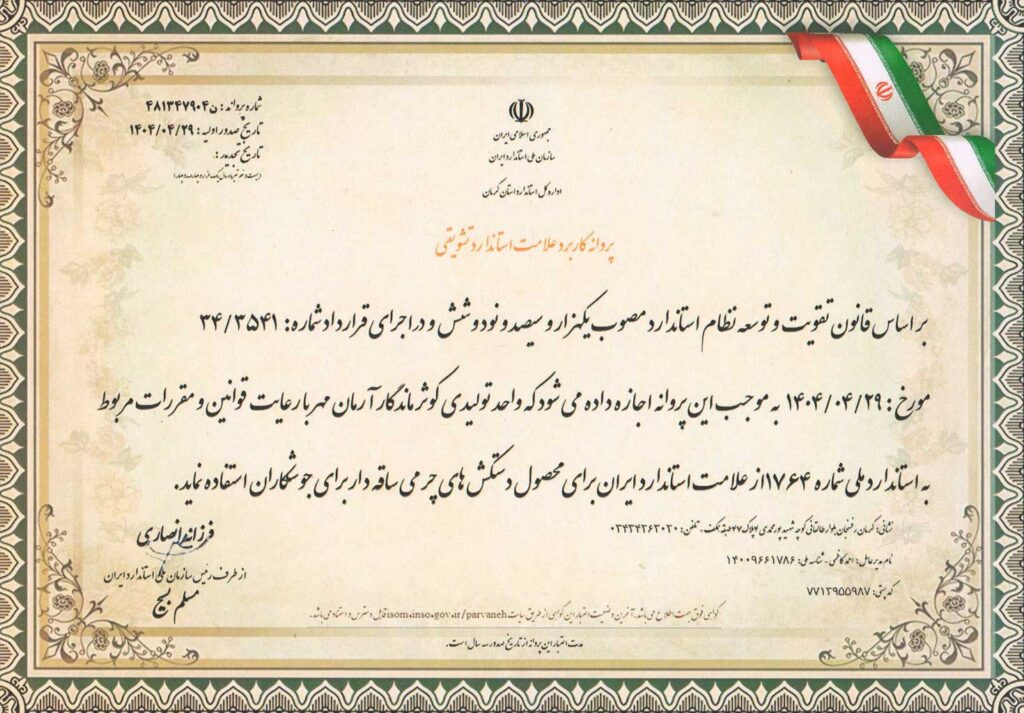 جمهوری اسلامی ایران
سازمان ملی استاندارد ایران
اداره کل استاندارد استان کرمان
شماره پروانه: ن۴۸۱۳۴۷۹۰۴
تاریخ صدور اولیه: ۱۴۰۴/۰۴/۲۹
تاریخ تمدید:
(بیست و نهم تیر ماه سال یک هزار و چهارصد و چهار)
پروانه کاربرد علامت استاندارد تشویقی
بر اساس قانون تقویت و توسعه نظام استاندارد مصوب یکهزار و سیصد و نود و شش و در اجرای قرارداد شماره: ۳۴/۳۵۴۱
مورخ: ۱۴۰۴/۰۴/۲۹ به موجب این پروانه اجازه داده می شود که واحد تولیدی کوثر ماندگار آرمان مهر با رعایت قوانین و مقررات مربوط
به استاندارد ملی شماره ۱۷۶۴ از علامت استاندارد ایران برای محصول دستکش های چرمی ساقه دار برای جوشکاران استفاده نماید.
نشانی: کرمان رفسنجان بلوار طالقانی کوچه شهید پورمحمدی ۴ پلاک ۴۷ طبقه همکف - تلفن: ۰۳۴۳۴۲۶۳۰۲۰
نام مدیرعامل: احمد کاظمی - شناسه ملی: ۱۴۰۰۹۶۶۱۷۸۶
کد پستی: ۷۷۱۳۹۵۵۹۸۷
فرزانه انصاری
از طرف رئیس سازمان ملی استاندارد ایران
مسلم بیج
گواهی فوق جهت اطلاع می باشد، آخرین وضعیت اعتبار این گواهی از طریق سایت isom.inso.gov.ir/parvaneh قابل دسترس و استناد می باشد.
مدت اعتبار این پروانه از تاریخ صدور سه سال است.